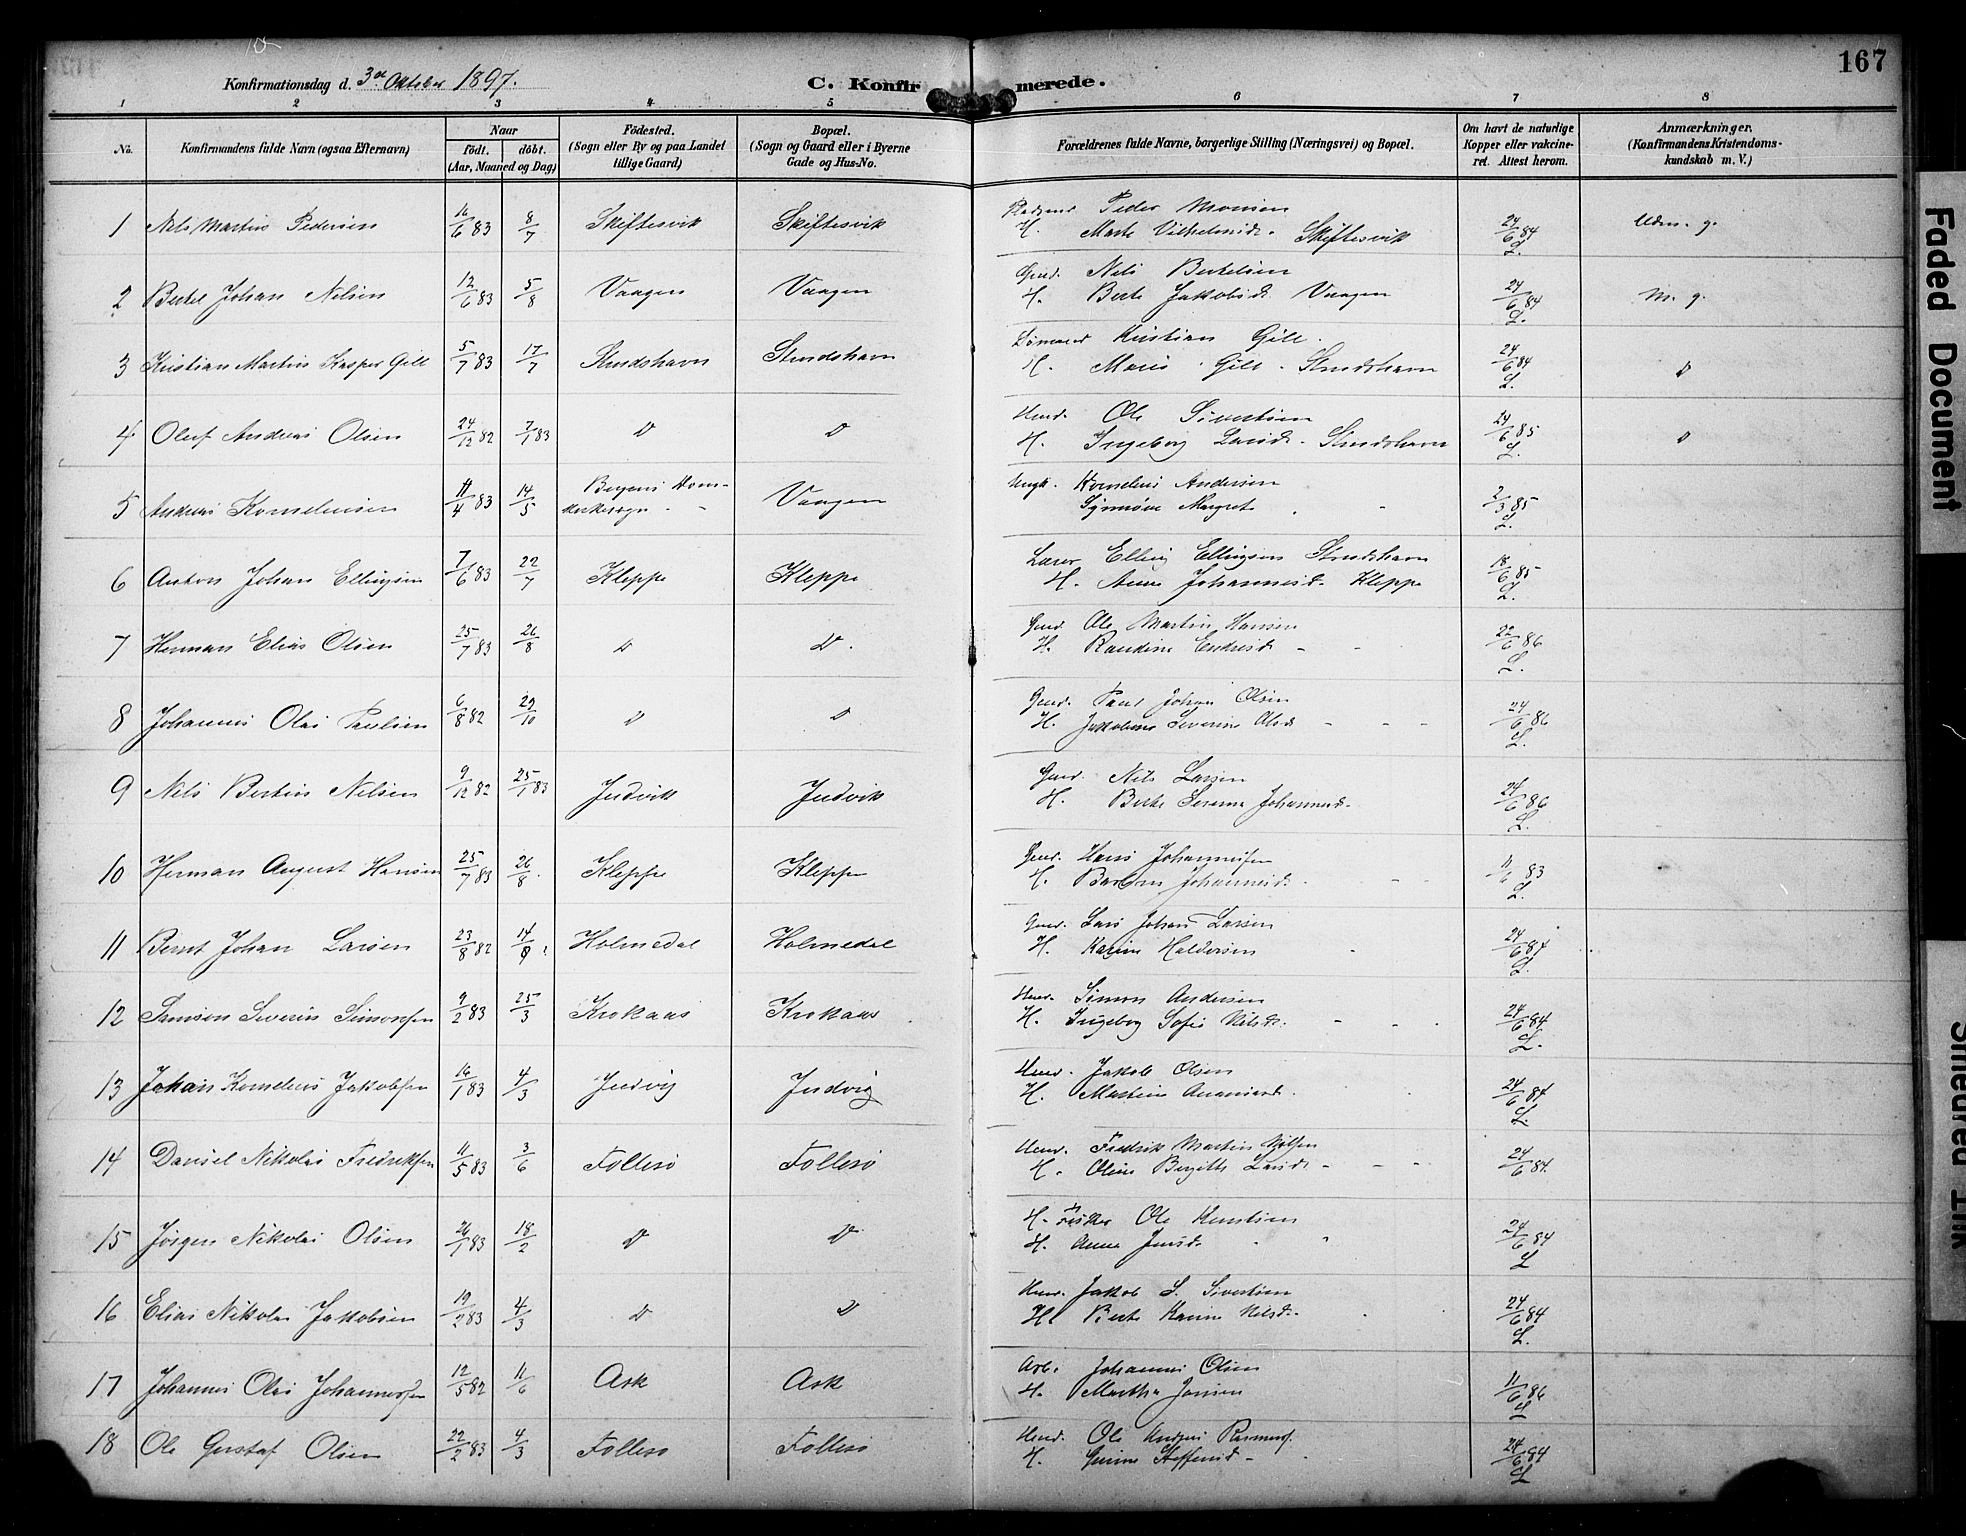 167
Konfirmationsdag d. 3die Oktober 1897.
C. Konfirmerede.
1 2 3 4 5 6 7 8
No. Konfirmandens fulde Navn (ogsaa Efternavn) Naar født. døbt. (Aar, Maaned og Dag) Fødested. (Sogn eller By og paa Landet tillige Gaard) Bopæl. (Sogn og Gaard eller i Byerne Gade og Hus-No. Forældrenes fulde Navne, borgerlige Stilling (Næringsvei) og Bopæl. Om havt de naturlige Kopper eller vakcineret. Attest herom. Anmærkninger. (Konfirmandens Kristendomskundskab m. V.)
1 Nils Martin Pedersen 16/6 83 8/7 Skiftesvik Skiftesvik Peder Monsen 24/6 84 Udm. g.
H. Marte Vilhelmsd. Skiftesvik L.
2 Bertel Johan Nilsen 12/6 83 5/8 Vaagen Vaagen Gmd. Nils Bertelsen 24/6 84 M. g.
H. Berte Jakobsd. Vaagen L.
3 Kristian Martin Kasper Gill 5/7 83 17/7 Strudshavn Strudshavn Lømand Kristian Gill. 24/6 84 D
H. Marie Gill - Strudshavn L.
4 Oluf Andreas Olsen 24/12 82 7/1 83 D D Hmd. Ole Sivertsen 24/6 85 D
H. Ingeborg Larsd. - Strudshavn L.
5 Andreas Kornelinsen 11/4 83 14/5 Bergens Domkirkesogn Vaagen Ungk. Kornelius Andersen 2/3 85
Synnøve Margret L.
6 Anton Johan Ellingsen 7/6 83 22/7 Kleppe Kleppe Lærer Elling Ellingsen Strudshavn 18/6 85
H. Anne Johannesd. Kleppe L.
7 Herman Elias Olsen 25/7 83 26/8 D D. Gmd. Ole Martin Hansen 22/6 86
H. Randine Endresd. - - L.
8 Johannes Olai Paulsen 6/8 82 29/10 D D Gmd. Paul Johan Olsen 24/6 86
H. Jakobine Severine Olsd. - - - L.
9 Nils Bertin Nilsen 9/12 82 25/1 83 Judvik Judvik Gmd. Nils Larsen 24/6 86
H. Berte Serine Johannesd. L.
10 Herman August Hansen 25/7 83 26/8 Kleppe Kleppe Gmd. Hans Johannessen 11/6 83
H. Johannesd. - - L.
11 Bernt Johan Larsen 23/8 82 14/9 Holmedal Holmedal Gmd. Lars Johan Larsen 24/6 84
H. Karine Haldorsen L.
12 Simson Severin Simonsen 9/2 83 25/3 Krokaas Krokaas Hmd. Simon Andersen 24/6 84
H. Ingeborg Sofie Nilsd. - - L.
13 Johan Kornelius Jakobsen 16/1 83 4/3 Judvig Judvig Hmd. Jakob Olsen 24/6 84
H. Martine Ananiasd. L.
14 Daniel Nikolai Fredriksen 11/5 83 3/6 Follesø Follesø Hmd. Fredrik Martin Nilsen 24/6 84.
H. Oline Birgitte Larsd. - - -
15 Jørgen Nikolai Olsen 26/1 83 18/2 D D H. Fisker Ole Knutsen 24/6 84
H. Anna Jensd. L
16 Elias Nikolai Jakobsen 19/2 83 4/3 D D Hmd. Jakob S. Sivertsen 24/6 84
H. Berte Karine Nilsd. L.
17 Johannes Olai Johannessen 12/5 82 11/6 Ask Ask Arb. Johannes Olsen 11/6 86
H. Martha Jansen L
18 Ole Gustaf Olsen 22/2 83 4/3 Follesø Follesø Hmd. Ole Andreas Rasmuss. 24/6 84
H. Gurine Steffensd. L
Faded Document
Smeared Ink